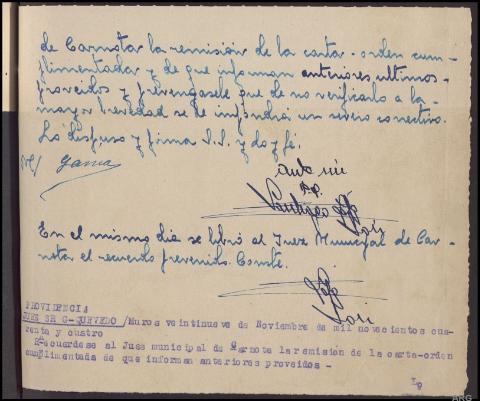 de Carnota la remisión de la carta-orden cum-
plimentada y de que informan anteriores ultimos
proveidos y prevengasele que de no verificarlo a la
mayor brevedad se le impondrá un severo correctivo.
Lo dispuso y firma S.S. y doy fé.
Garcia
ante mi
P.P.
Santiago
En el mismo dia se libró al Juez Municipal de Car-
nota el recuerdo prevenido. Conste.
PROVIDENCIA
JUEZ SR G-QUEVEDO/Muros veintinueve de Noviembre de mil novecientos cua-
renta y cuatro
Recuerdese al Jues municipal de Carnota la remision de la carta-orden
cumplimentada de que informan anteriores proveidos -
ARG